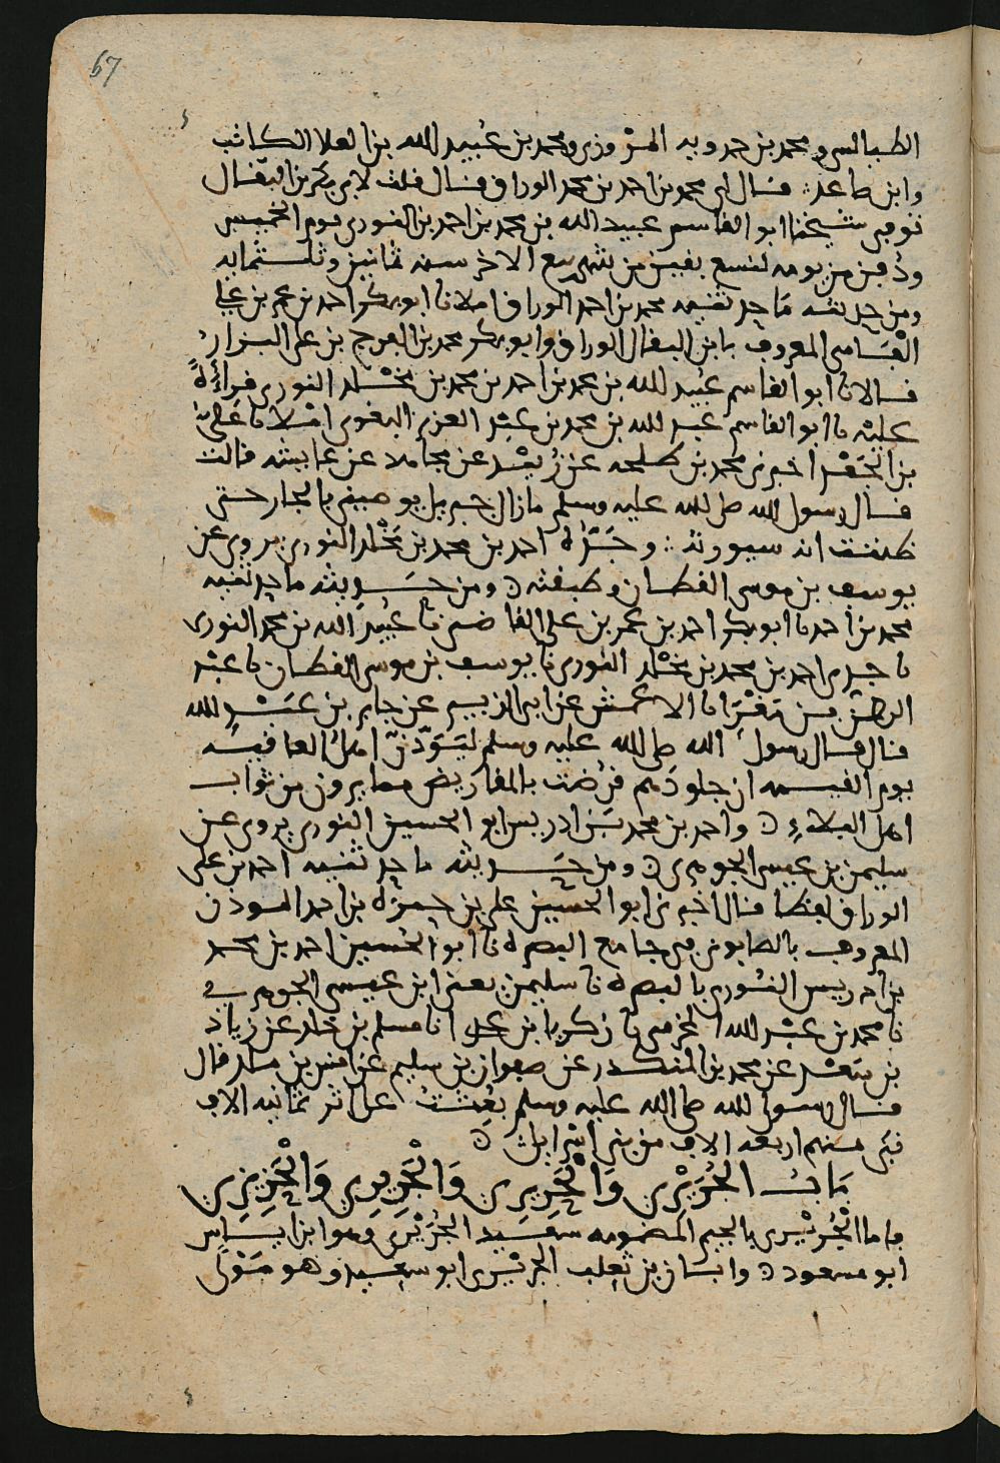 67
الطيالسي ومحمد بن حمدويه المروزي ومحمد بن عبيد الله بن العلا الكاتب
وابن صاعد قال لي محمد بن احمد بن محمد الوراق قال قلت لابي بكر بن البقال
توفي شيخنا ابو القاسم عبيد الله بن محمد بن احمد بن الثوري يوم الخميس
ودفن من يومه لتسع بقين من شهر ربيع الاخر سنة ثمانين وثلثمايه
ومن حديثه ما حدثنيه محمد بن احمد الوراق املا نا ابو بكر احمد بن عمر بن علي
القاضي المعروف بابن البقال الوراق وابو بكر محمد بن الفرج بن علي البزار
قالا نا ابو القاسم عبيد الله بن محمد بن احمد بن محمد بن مخلد الثوري قراءة
عليه نا ابو القاسم عبد الله بن محمد بن عبد العزيز البغوي املا نا علي
بن الجعد اخبرني محمد بن طلحه عن زبيد عن مجاهد عن عايشه قالت
قال رسول الله صلى الله عليه وسلم مازال جبريل يوصيني بالجار حتى
ظننت انه سيورثه وجده احمد بن محمد بن مخلد الثوري يروي عن
يوسف بن موسى القطان وطبقته ومن حديثه ما حدثنيه
محمد بن احمد نا ابو بكر احمد بن عمر بن علي القاضي نا عبيد الله بن محمد الثوري
نا جدي احمد بن محمد بن مخلد الثوري نا يوسف بن موسى القطان نا عبد
الرحمن بن مغرا نا الاعمش عن ابي الزبير عن جابر بن عبد الله
قال قال رسول الله صلى الله عليه وسلم ليودن اهل العافيه
يوم القيمه ان جلودهم قرضت بالمقاريض مما يرون من ثواب
اهل البلاء واحمد بن محمد بن ادريس ابو الحسين الثوري يروي عن
سليمن بن عيسى الجوهري ومن حديثه ما حدثنيه احمد بن علي
الوراق لفظا قال اخبرني ابو الحسين علي بن حمزة بن احمد الموذن
المعروف بالصابوني في جامع البصره نا ابو الحسين احمد بن محمد
بن ادريس الثوري بالبصره نا سليمن يعني ابن عيسى الجوهري
نا محمد بن عبد الله المخرمي نا زكريا بن عدي انا مسلم بن خالد عن زياد
بن سعد عن محمد بن المنكدر عن صفوان بن سليم عن انس بن ملك قال
قال رسول الله صلى الله عليه وسلم بعثت على اثر ثمانيه الاف
نبي منهم اربعه الاف من بني اسرايل
باب الجُرَيْري والجَرِيري والحَرِيري والحَزِيزي
فاما الجريري بالجيم المضمومه سعيد الجريري وهو ابن اياس
ابو مسعود وابان بن تغلب الجريري ابو سعيد وهو مولى